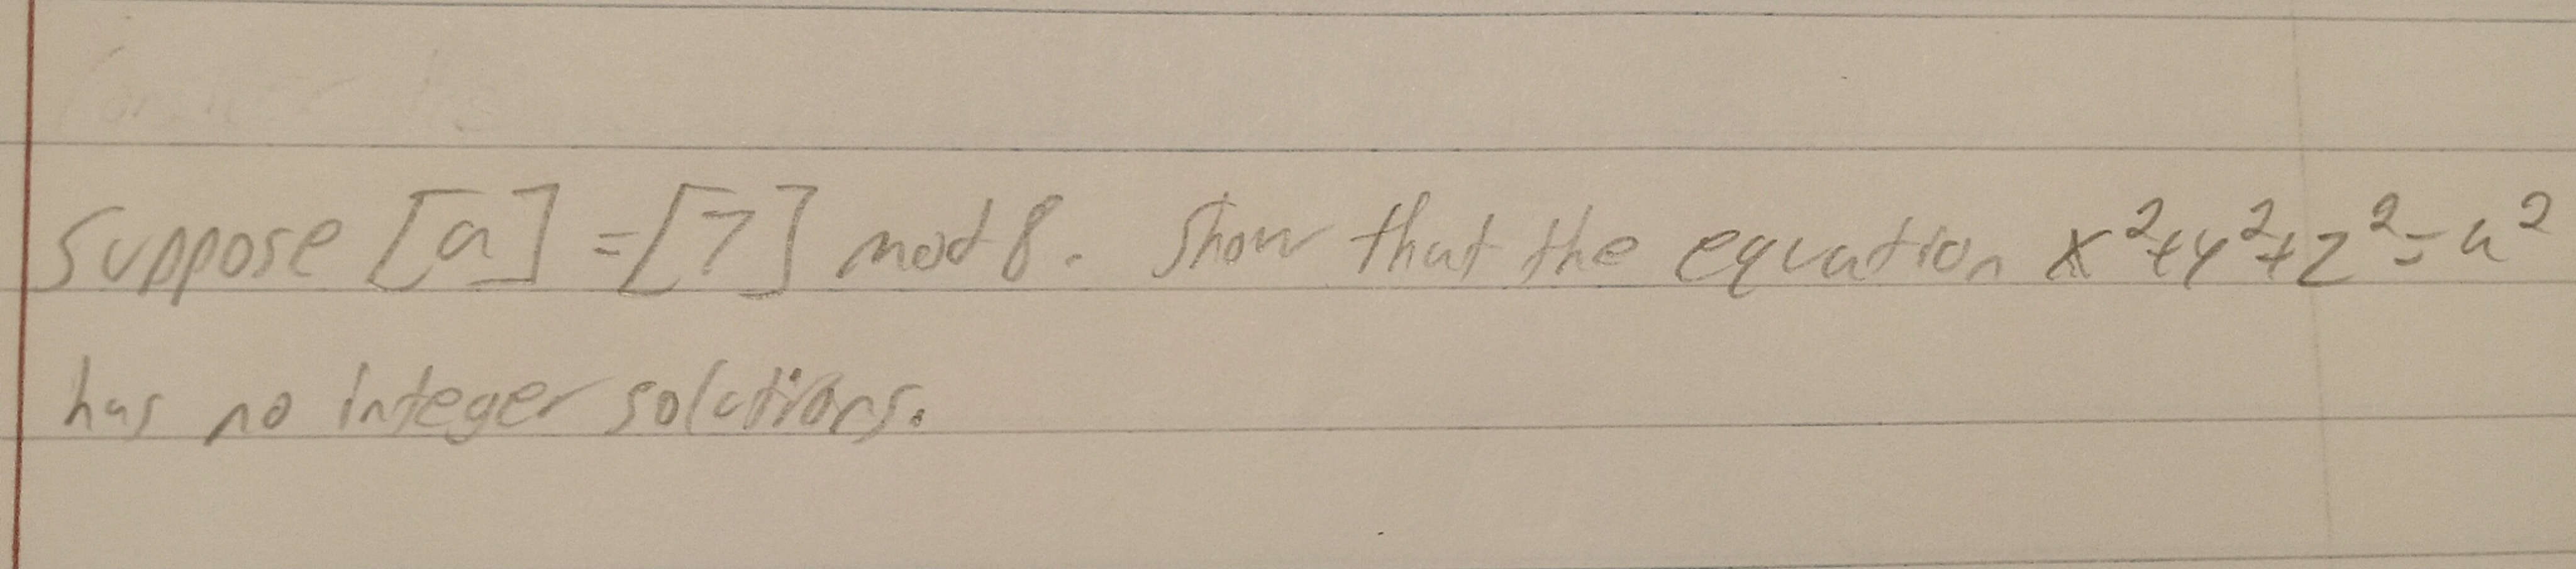 Suppose [a] = [7] mod 8. Show that the equation x²+y²+z²=a²
has no integer solutions.